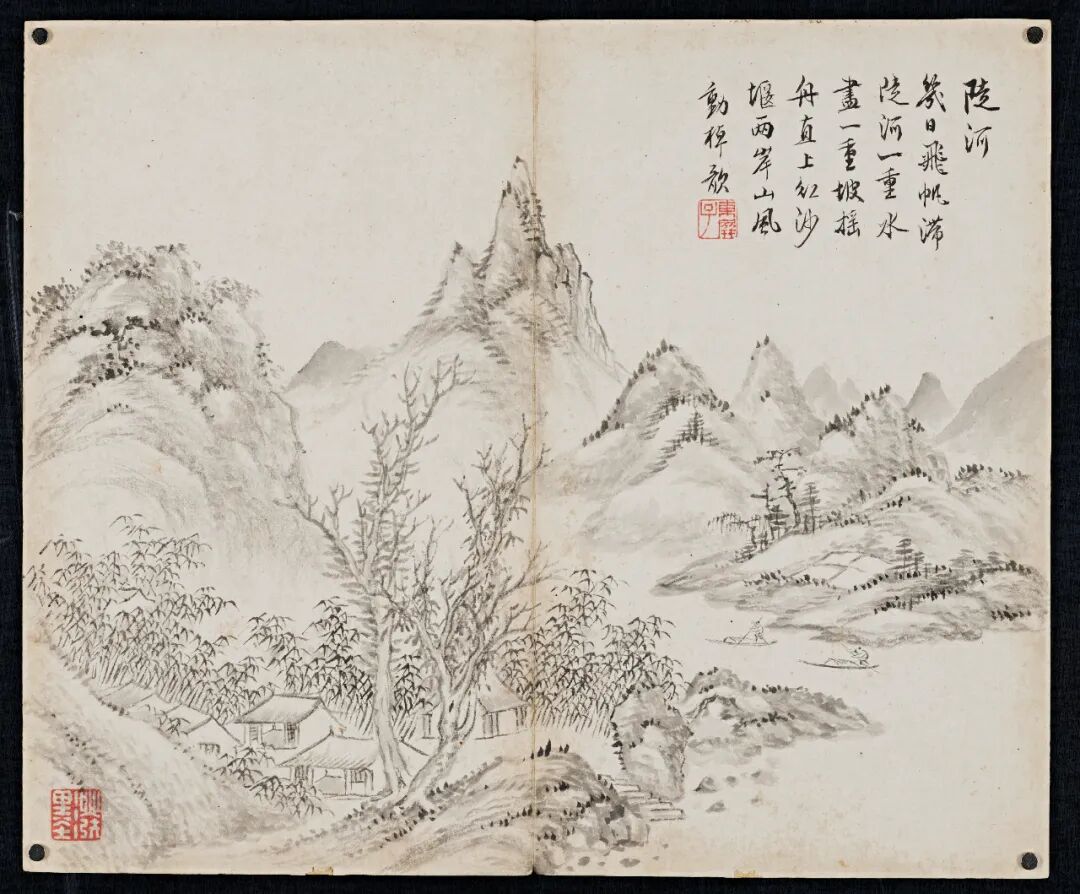 陡河
幾日飛帆滞
陡河一重水
盡一重坡摇
舟直上紅沙
堰两岸山風
動棹歌